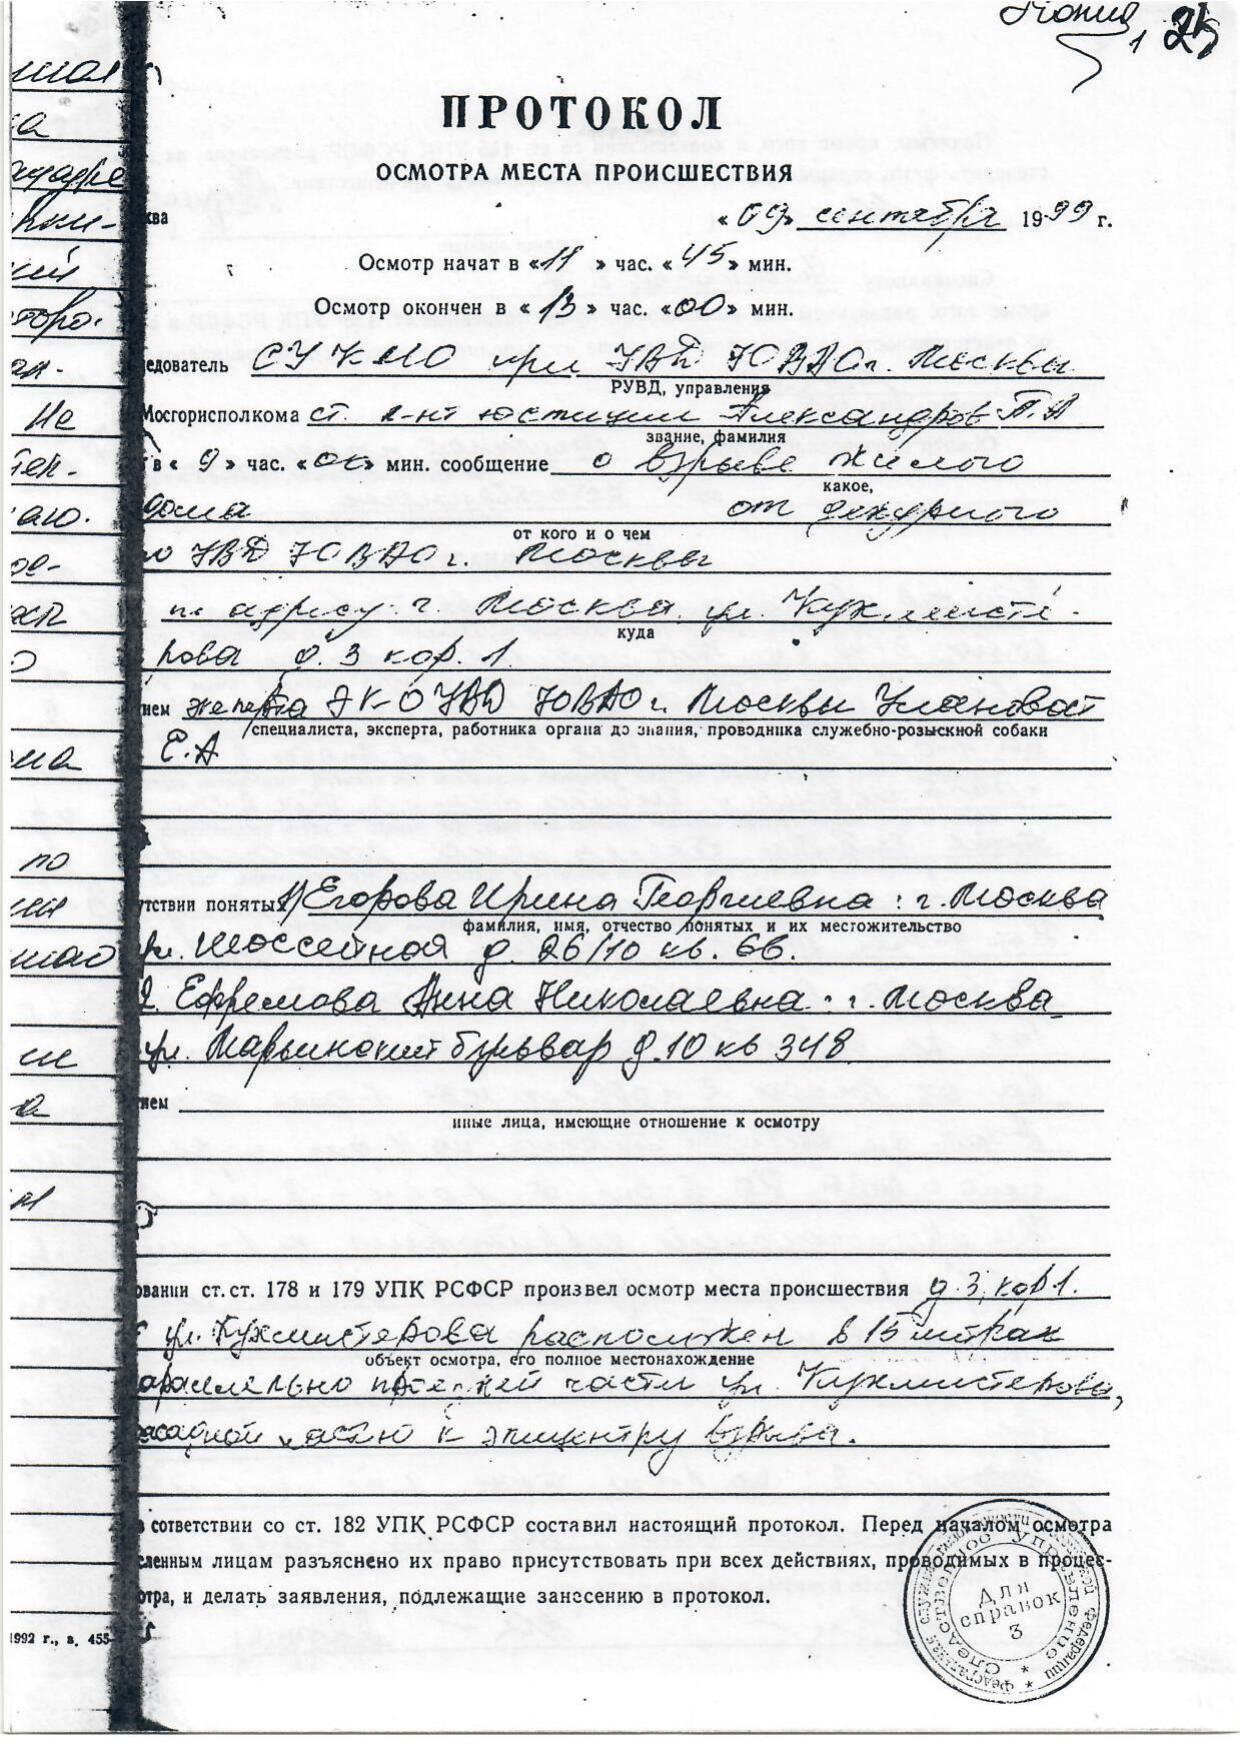 Копия
1 25
ПРОТОКОЛ
ОСМОТРА МЕСТА ПРОИСШЕСТВИЯ
ква « 09 » сентября 1999 г.
Осмотр начат в « 11 » час. « 45 » мин.
Осмотр окончен в « 13 » час. « 00 » мин.
ледователь СУ КМЮ при УВД ЮВАО г. Москвы
РУВД, управления
Мосгорисполкома ст. л-нт юстиции Александров П.А
звание, фамилия
в « 9 » час. «00» мин. сообщение о взрыве жилого
какое,
дома от дежурного
от кого и о чем
по УВД ЮВАО г. Москвы
по адресу: г. Москва ул. Кухмисте-
куда
рова д. 3 кор. 1.
ием эксперта ЭКО УВД ЮВАО г. Москвы
специалиста, эксперта, работника органа дознания, проводника служебно-розыскной собаки
Е.А
утствии понятых 1) Егорова Ирина Георгиевна: г. Москва
фамилия, имя, отчество понятых и их местожительство
ул. Шоссейная д. 26/10 кв. 66.
2. Ефремова Анна Николаевна: г. Москва
ул. Марьинский бульвар д. 10 кв 348
ием
иные лица, имеющие отношение к осмотру
овании ст. ст. 178 и 179 УПК РСФСР произвел осмотр места происшествия д. 3, кор 1.
ул. Кухмистерова расположен в 15 метрах
объект осмотра, его полное местонахождение
араллельно проезжей части ул. Кухмистерова,
асадной частью к эпицентру взрыва.
в сответствии со ст. 182 УПК РСФСР составил настоящий протокол. Перед началом осмотра
сленным лицам разъяснено их право присутствовать при всех действиях, проводимых в процес-
отра, и делать заявления, подлежащие занесению в протокол.
1992 г., в. 455
Следственное Управление
Для
справок
3